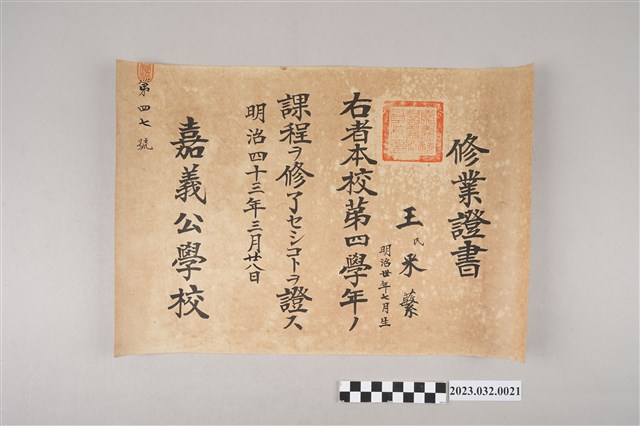 修業證書
王氏米蘩
明治世年七月生
右者本校第四學年ノ
課程ヲ修了セシコトヲ證ス
明治四十三年三月廿八日
嘉義公學校
第四七號
2023.032.0021